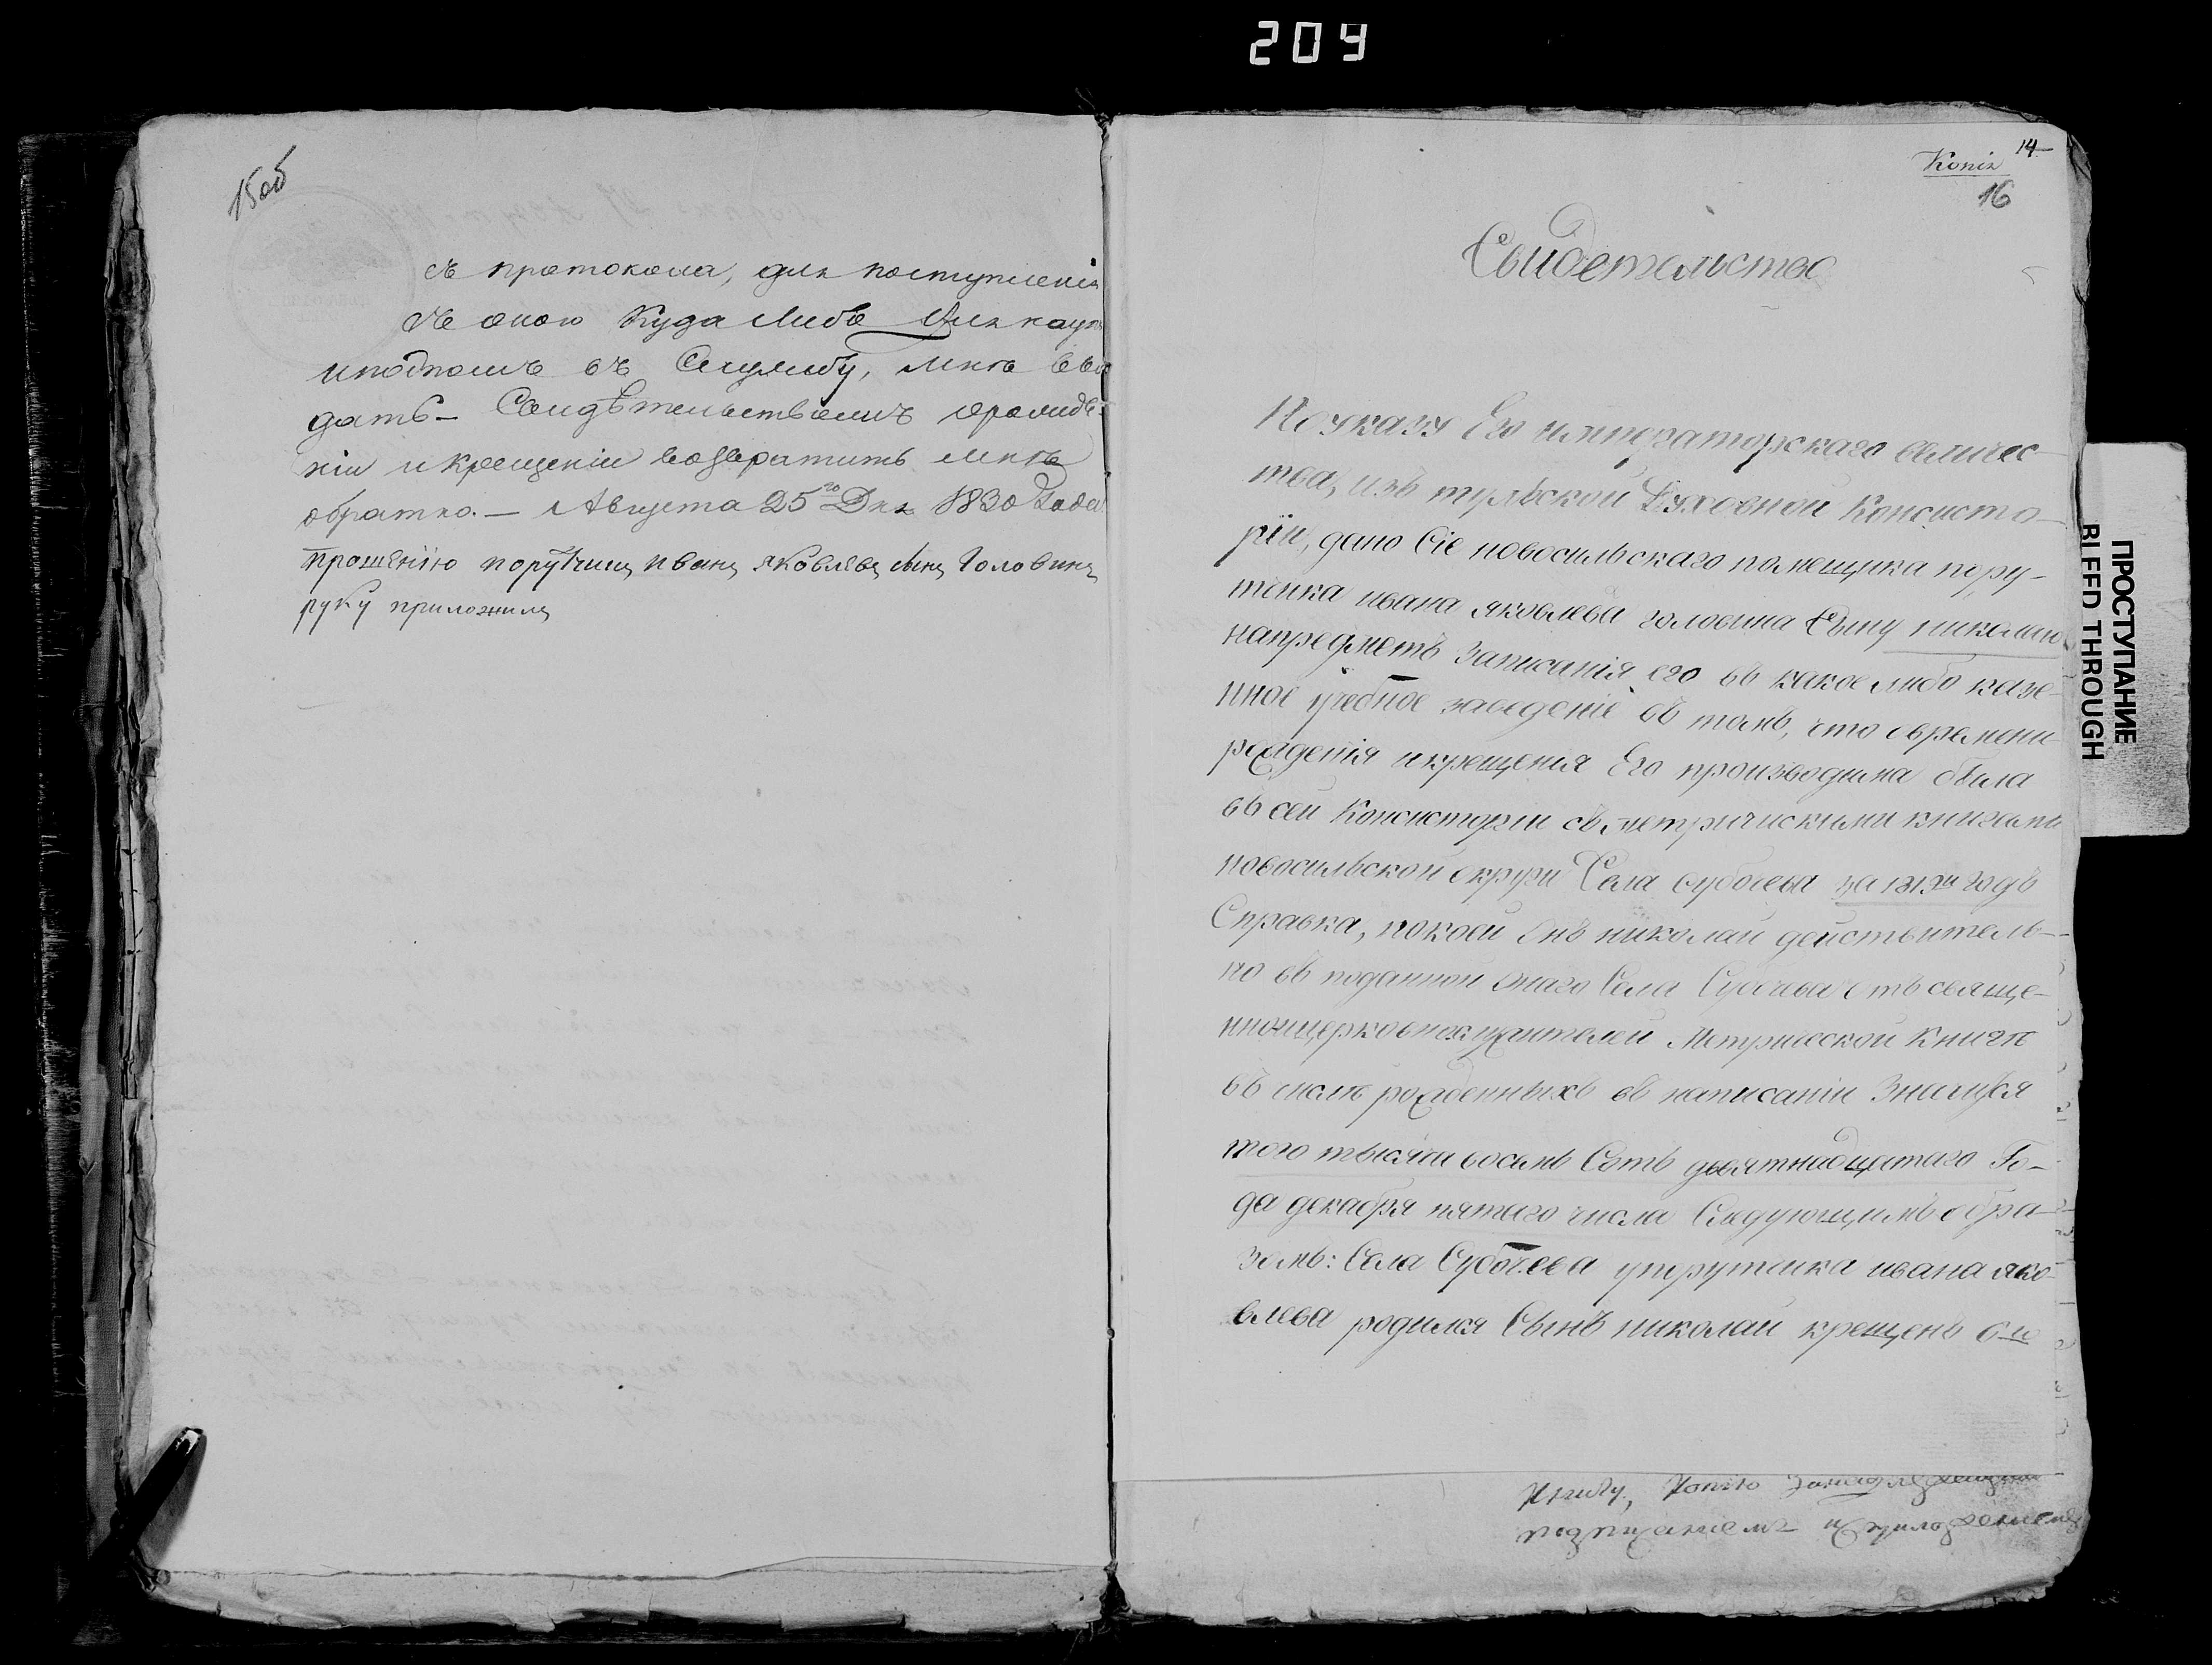 209
15об
съ протокола, для поступленія
съ оною куда либо для наукъ
и подпомъ въ Службу, мнѣ вы
дать — Свидѣтельствомъ о рожде-
ніи и крещеніи возвратить мнѣ
обратно. — Августа 25го Дня 1830 Года
прошенію порутчикъ иванъ яковлевъ сынъ Головинъ
руку приложилъ
Копія 14
16
Свидетельство
По указу Его императорскаго величес-
тва, изъ тульской Духовной Консисто-
ріи, дано Сіе новосильскаго помещика пору-
тчика ивана яковлева головина Сыну николаю
напредметъ записанія его въ какое либо казе-
нное учебное заведеніе въ томъ, что овремени
рожденія икрещенія Его производима была
въ сей Консистории съ метрическими книгами
новосильской округи Села субочева за 1819й годъ
Справка, покоей Онъ николай действитель-
но въ поданной Онаго Села Субочева отъ свяще-
нноицерковнослужителей Метрической Книгѣ
въ числѣ рожденныхъ въ написаніи Значится
того тысяча восемь Сотъ девятнадцатаго Го-
да декабря пятаго числа Следующимъ обра-
зомъ: Села Субочева упорутчика ивана яко-
влева родился Сынъ николай крещенъ 6го
Книгу, Копію
ПРОСТУПАНИЕ
BLEED THROUGH